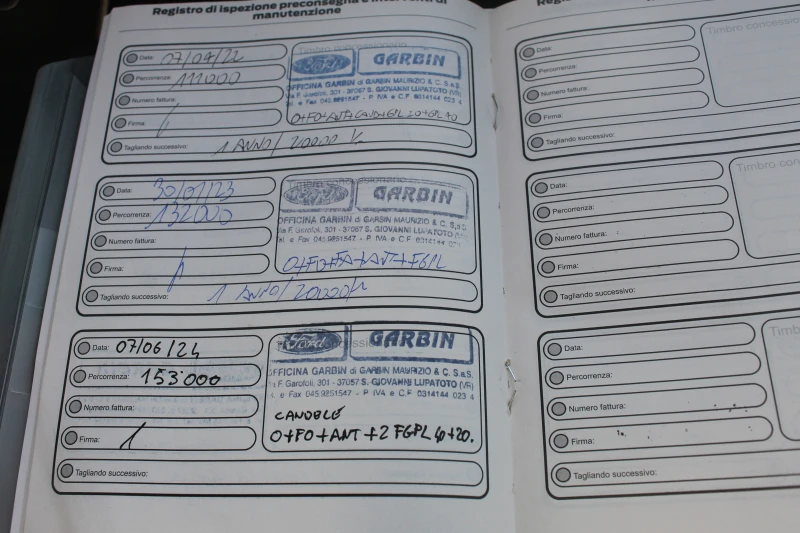 Registro di ispezione preconsegna e interventi di
manutenzione
Data: 07/04/22
Percorrenza: 111000
Numero fattura:
Firma:
Timbro concessionario
Ford GARBIN
OFFICINA GARBIN di GARBIN MAURIZIO & C. S.a.s.
Via F. Garofoli, 301 - 37057 S. GIOVANNI LUPATOTO (VR)
Tel. e Fax 045.9851547 - P. IVA e C.F. 0314144 023 4
Tagliando successivo: 1 ANNO/20000 K
Data: 30/01/23
Percorrenza: 132000
Numero fattura:
Firma:
Ford GARBIN
OFFICINA GARBIN di GARBIN MAURIZIO & C. S.a.s.
Via F. Garofoli, 301 - 37057 S. GIOVANNI LUPATOTO (VR)
Tel. e Fax 045.9851547 - P. IVA e C.F. 0314144 023 4
O+FO+FA+ANT+FGPL
Tagliando successivo: 1 ANNO/20000/K
Data: 07/06/24
Percorrenza: 153'000
Numero fattura:
Firma:
Ford GARBIN
OFFICINA GARBIN di GARBIN MAURIZIO & C. S.a.s.
Via F. Garofoli, 301 - 37057 S. GIOVANNI LUPATOTO (VR)
Tel. e Fax 045.9851547 - P. IVA e C.F. 0314144 023 4
CANDELE
O+FO+ANT+2 FGPL 10+20.
Tagliando successivo:
Data:
Percorrenza:
Numero fattura:
Firma:
Timbro concessio
Tagliando successivo:
Data:
Percorrenza:
Numero fattura:
Firma:
Timbro
Tagliando successivo:
Data:
Percorrenza:
Numero fattura:
Firma:
Timb
Tagliando successivo: